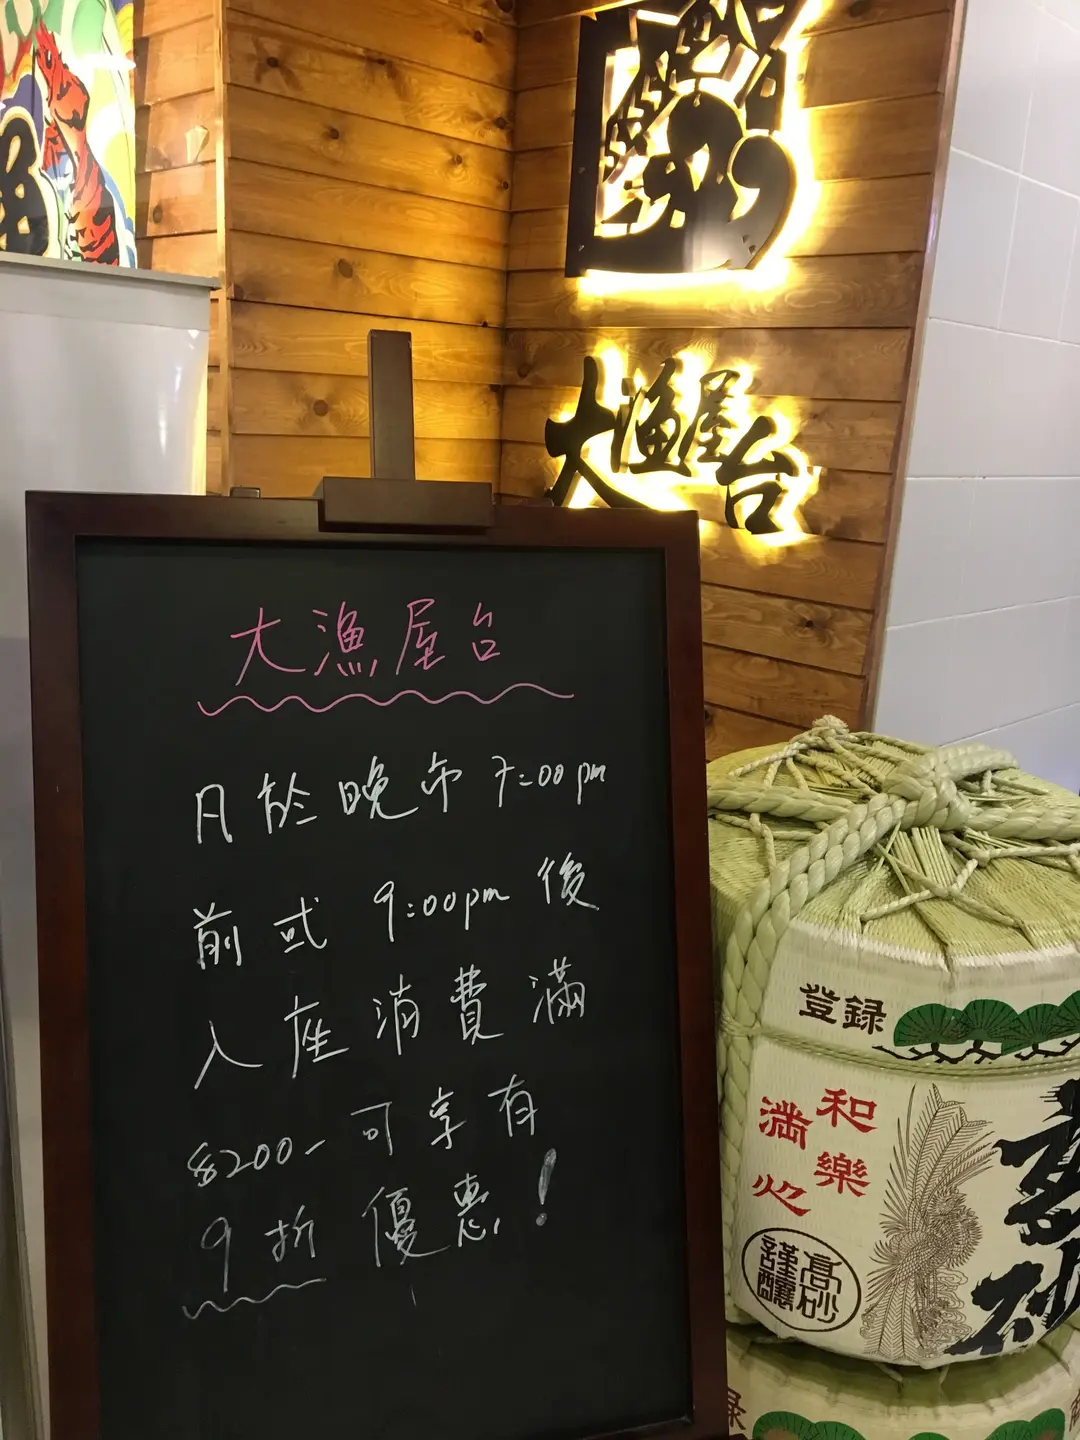 大漁屋台
大漁屋台
凡於晚市7:00pm
前或9:00pm後
入座消費滿
$200-可享有
9折優惠!
登録
和樂
満心
高砂
謹醸